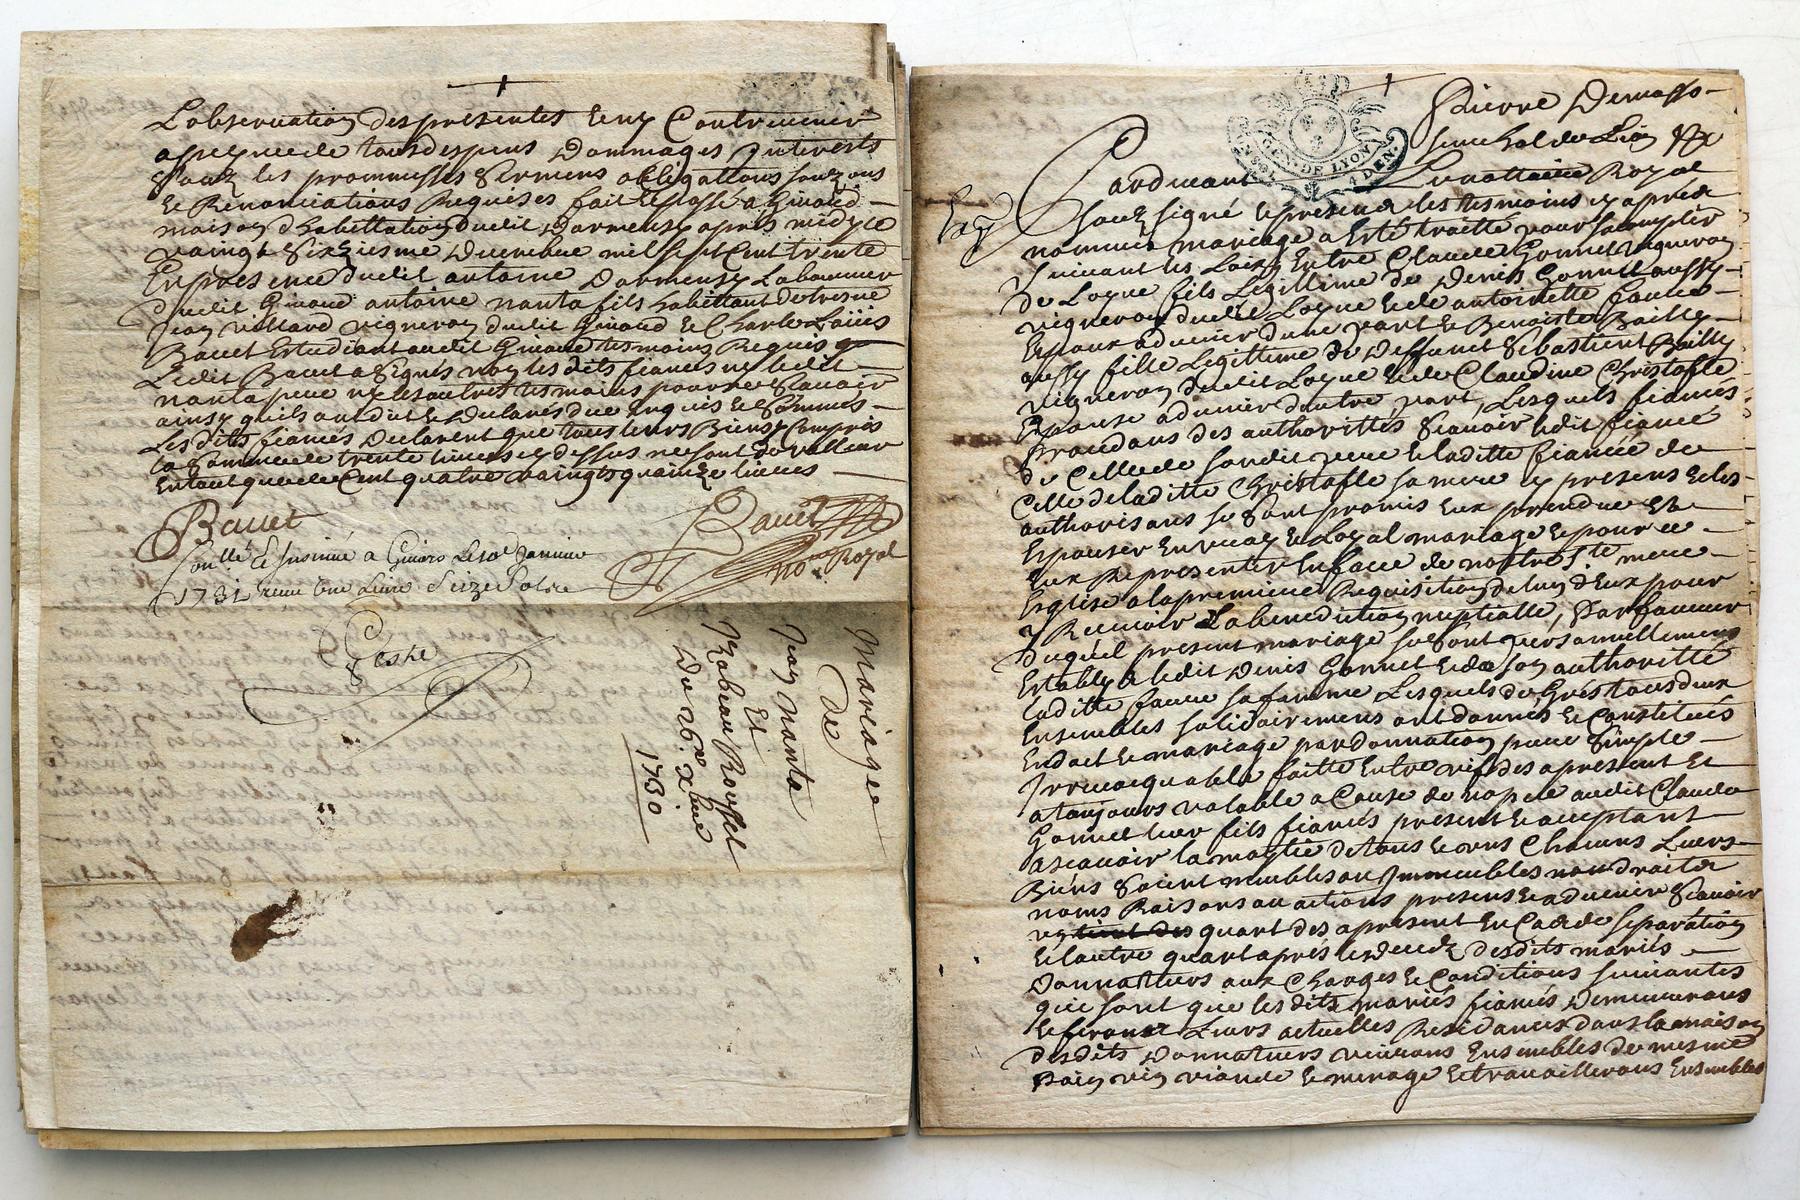 L'observation des presentes Et ny Contrevenir
a peyne de tous despens Dommages Interests
Soubz les prommesses Sermens obligations Souzmis
Et Renonciations Requises fait Et passé a
maison d'habittation dudit Dormensy apres midy le
vaingt Sixziesme Decembre mil Sept Cent trente
En presence dudit antoine Dormensy Laboureur
dudit antoine nanta fils habittant de
Jean Villard vigneron dudit Et Charle Loüis
Bauet Estudiant audit tesmoins Requis
Ledit Bauet a Signé non les dits fiancés ny ledit
nanta pere ny les autres tesmoins pour ne Scauoir
ainsy quils ont dit Et declarés de ce Enquis Et Sommés
Les dits fiancés Declarent que tous leurs Biens y Compris
la Somme de trente liures cy dessus ne sont de valleur
En tout que de Cent quatre vaingts quainze liures
Bauet
Bauet
no.re Royal
Conllé Et Insinué a Le Janvier
1731 receu une Livre Seize Sols
Mariage
De
Jean Nanta
Et
Rabeau Roussel
Du 26.e xbre
1730
Pierre
GEN. DE LYON
4 DEN.
Pardeuant Le nottaire Royal
Souz signé Et presens les tesmoins cy apres
nommés mariage a Esté traitté pour s'acomplir
Suiuant les Loix Entre Claude Gonnet vigneron
de Loyse fils Legittime de Denis Gonnet aussy
vigneron dudit Loyse Et de antoinette faure
Espoux aduenir d'une part Et Benoiste Bailly
aussy fille Legittime de Deffunct Sebastient Bailly
vigneron dudit Loyse Et de Claudine Christofle
Espouse aduenir d'autre part, Lesquels fiancés
procedans des authorittés Scauoir ledit fiancé
de Celle de sondit pere Et laditte fiancée de
Celle de laditte Christofle sa mere cy presens Et les
authorisans se sont promis Eux prendre Et
Espouser En vray Et Loyal mariage Et pour ce
Eux Representer En face de nostre S.te mere
Esglise a la premiere Requisition de lun d'Eux pour
y Receuoir La benediction nuptialle, En faueur
duquel present mariage se sont personnellement
Estably ledit Denis Gonnet Et de son authoritté
laditte faure sa famme Lesquels de Grés tous deux
Ensembles solidairemens ont donnés Et Constitués
En dot Et mariage par donnation pure Simple
Irreuocquable faitte Entre vifs des apresent Et
a tousjours valable a Cause de nopce audit Claude
Gonnet leur fils fiancé present Et acceptant
a scauoir la moytié de tous Et vns Chacuns Leurs
Biens Soient meubles ou Immeubles noms droits
noms Raisons ou actions presens Et aduenir Scauoir
quart des apresent En Cas de separation
Et lautre quart aprés le deceds desdits mariés
Donnatteurs aux Charges Et Conditions suiuantes
qui sont que les dits mariés fiancés Demeureront
Et feront Leurs actuelles Residances dans la maison
desdits Donnatteurs viuront Ensembles de mesme
pain vin viande Et menage Et trauailleront Ensembles